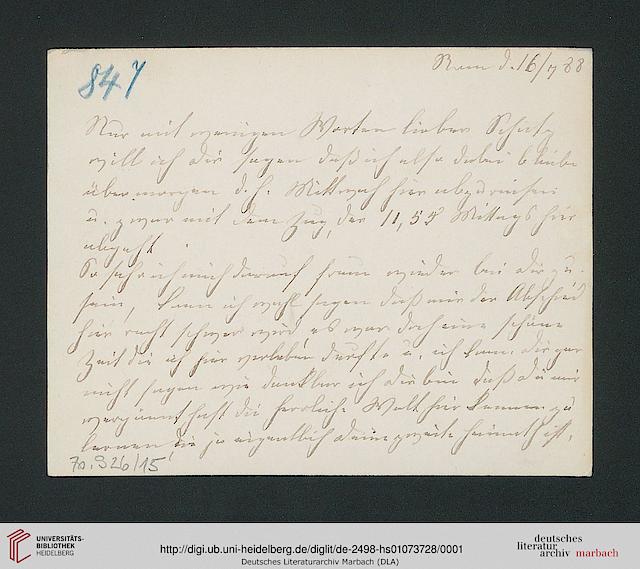 847
Rom d. 16/7 88
Nur mit wenigen Worten lieber Schatz
will ich dir sagen daß ich also dabei bleibe
übermorgen d. h. Mittwoch hier abzureisen
u. zwar mit dem Zug, der 11,55 Mittags hier
abgeht.
So sehr ich mich darauf freue wieder bei dir zu
sein, kann ich wohl sagen daß mir der Abschied
hier recht schwer wird es war doch eine schöne
Zeit die ich hier verleben durfte u. ich kann dir gar
nicht sagen wie dankbar ich dir bin daß du mir
vergönnt hast die herrliche Welt hier kennen zu
lernen, die ja eigentlich deine zweite Heimath ist.
70.926/15
UNIVERSITÄTS-
BIBLIOTHEK
HEIDELBERG
http://digi.ub.uni-heidelberg.de/diglit/de-2498-hs01073728/0001
Deutsches Literaturarchiv Marbach (DLA)
deutsches
literatur
archiv marbach